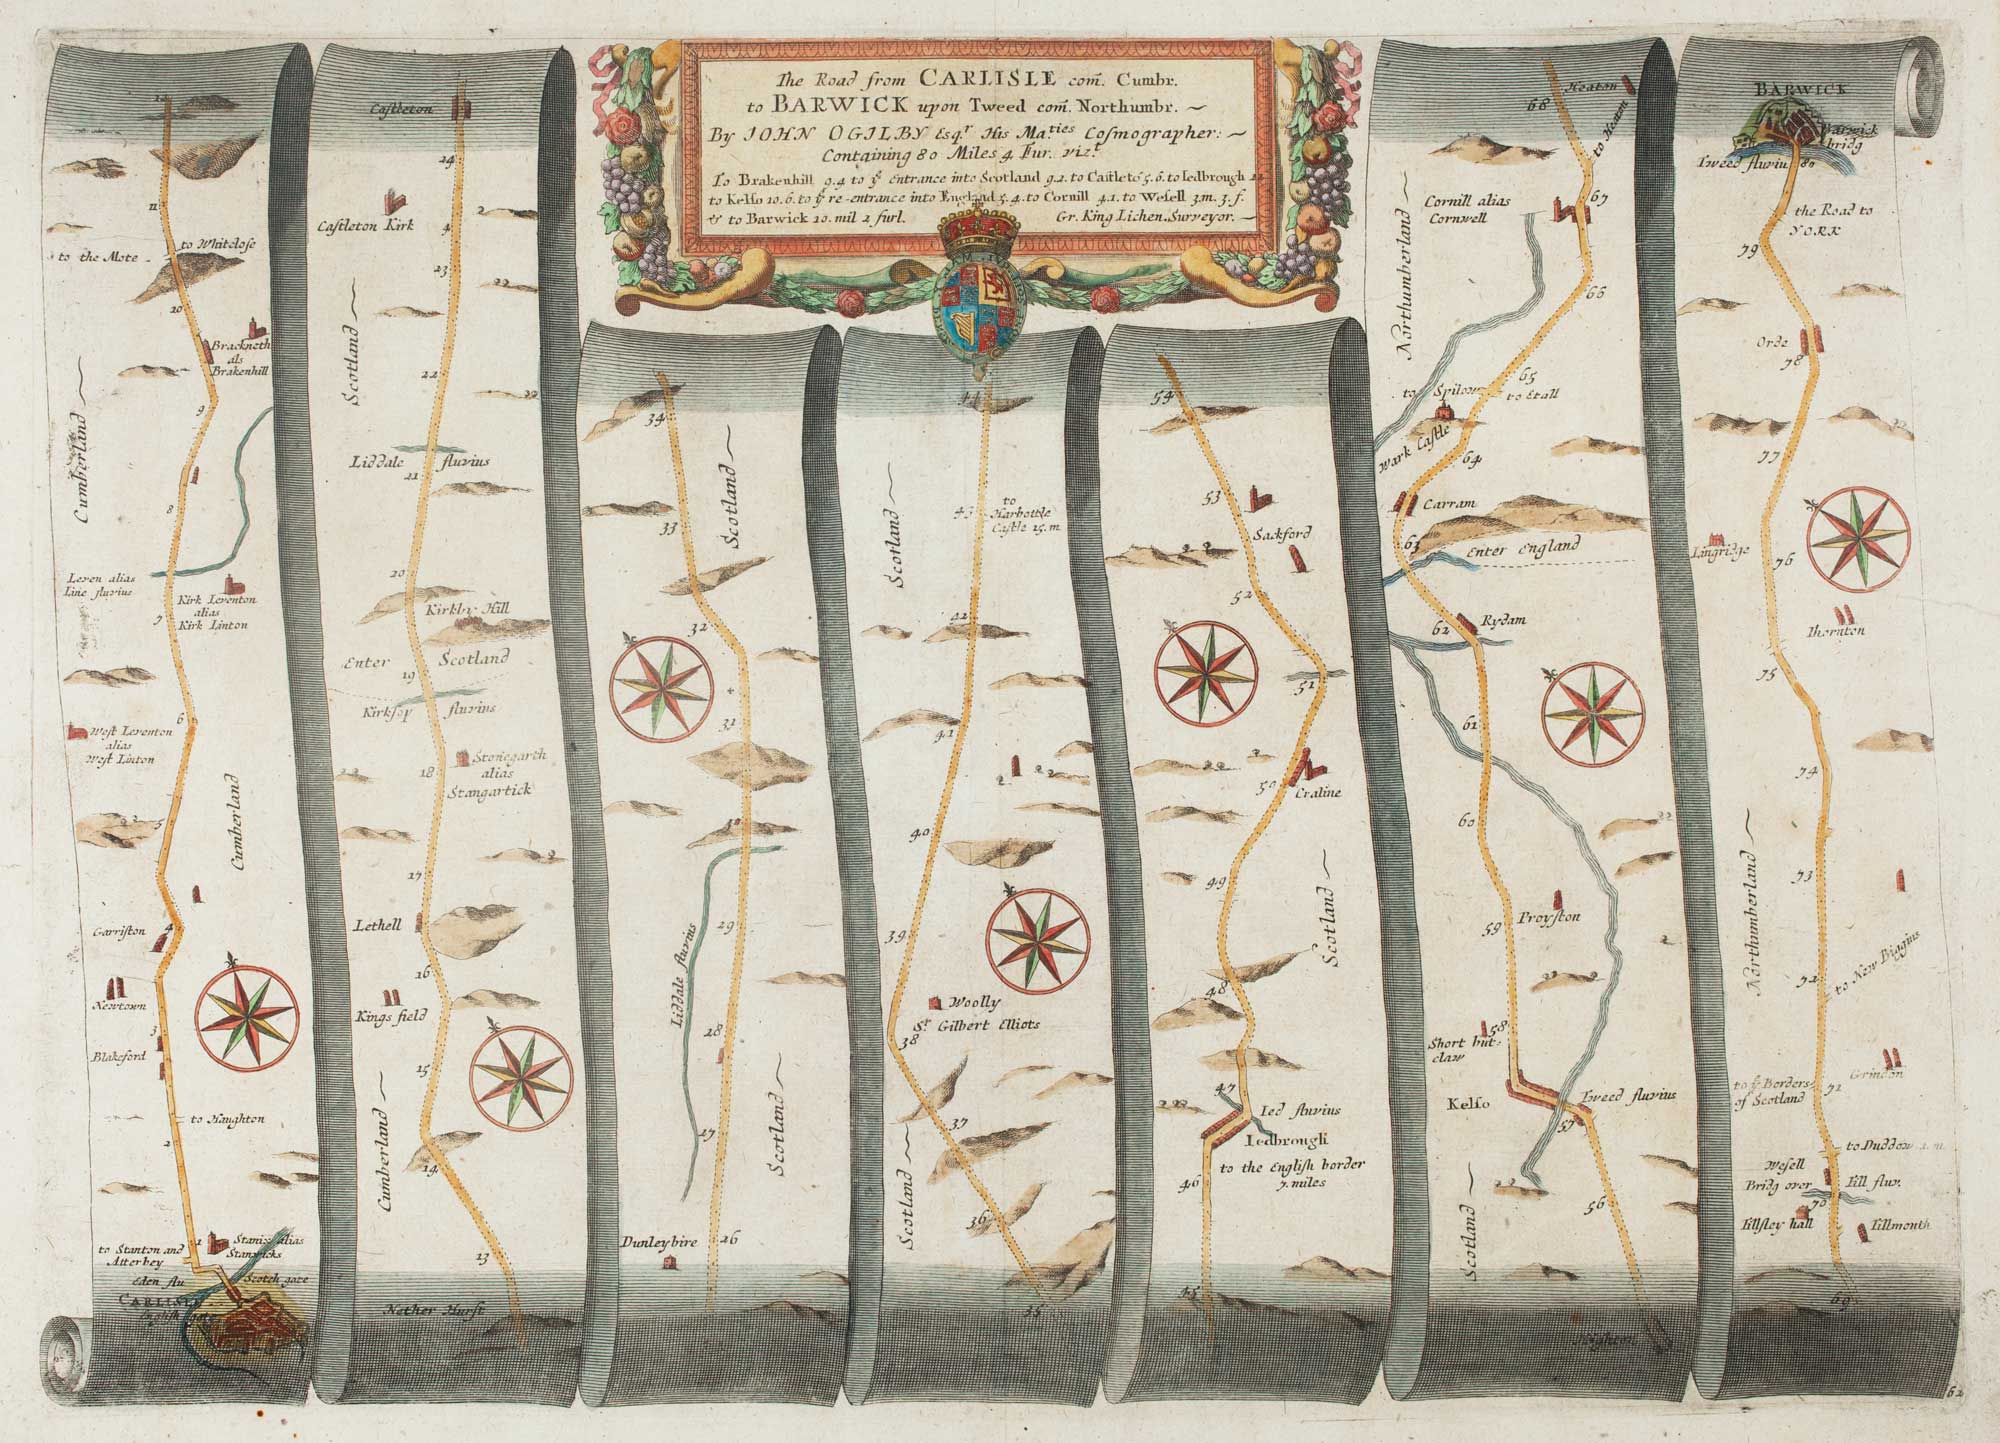 The Road from CARLISLE com̃. Cumbr.
to BARWICK upon Tweed com̃. Northumbr. ~
By IOHN OGILBY Esqr. His Maties Cosmographer: ~
Containing 80 Miles 4 Fur. vizt.
To Brakenhill 9.4 to ye entrance into Scotland 9.2. to Castletõ 5.6. to Iedbrough 22
to Kelso 10.6. to ye re-entrance into England 5.4. to Cornill 4.1. to Wesell 3.m. 3.f.
& to Barwick 10. mil 2 furl.
Gr. King Lichen. Surveyor. ~
12
11
to Whitclose
to the Mote
10
Brackneth
als
Brakenhill
9
Cumberland
8
Leven alias
Line fluvius
Kirk Leventon
alias
Kirk Linton
7
6
West Leventon
alias
West Linton
Cumberland
5
Garriston
4
Newtown
3
Blakeford
to Haughton
2
1
Stanix alias
Stanwicks
to Stanton and
Atterbey
Eden flu
Scotch gate
CARLISLE
English gate
Castleton
24
Castleton Kirk
4
23
Scotland
22
Liddale fluvius
21
20
Kirkby Hill
Enter Scotland
19
Kirksop fluvius
Stonegarth
alias
Stangartick
18
17
Lethell
16
Kings field
15
Cumberland
14
13
Nether Hurst
34
Scotland
33
32
31
30
29
Liddale fluvius
28
Scotland
27
Dunleybire
26
44
to
Harbottle
Castle 15. m
43
Scotland
42
41
40
39
Woolly
Sr. Gilbert Elliots
38
37
Scotland
36
35
54
53
Sackford
52
51
50
Craline
49
Scotland
48
47
Ied fluvius
Iedbrough
to the English border
7. miles
46
45
Heaton
68
to Heaton
67
Cornill alias
Cornwell
Northumberland
66
65
to Spilow
to Etall
Wark Castle
64
Carram
63
Enter England
62
Rydam
61
60
Proyston
59
58
Short but
claw
Kelso
Tweed fluvius
57
56
Scotland
BARWICK
Barwick
bridg
Tweed fluviu
80
the Road to
YORK
79
Orde
78
77
Lingridge
76
Thornton
75
74
Northumberland
73
72
to New Biggins
Grindon
to ye Borders
of Scotland
71
to Duddow 1. m.
Wesell
Bridg over
Till fluv.
70
Tillsley hall
Tillmouth
69
62